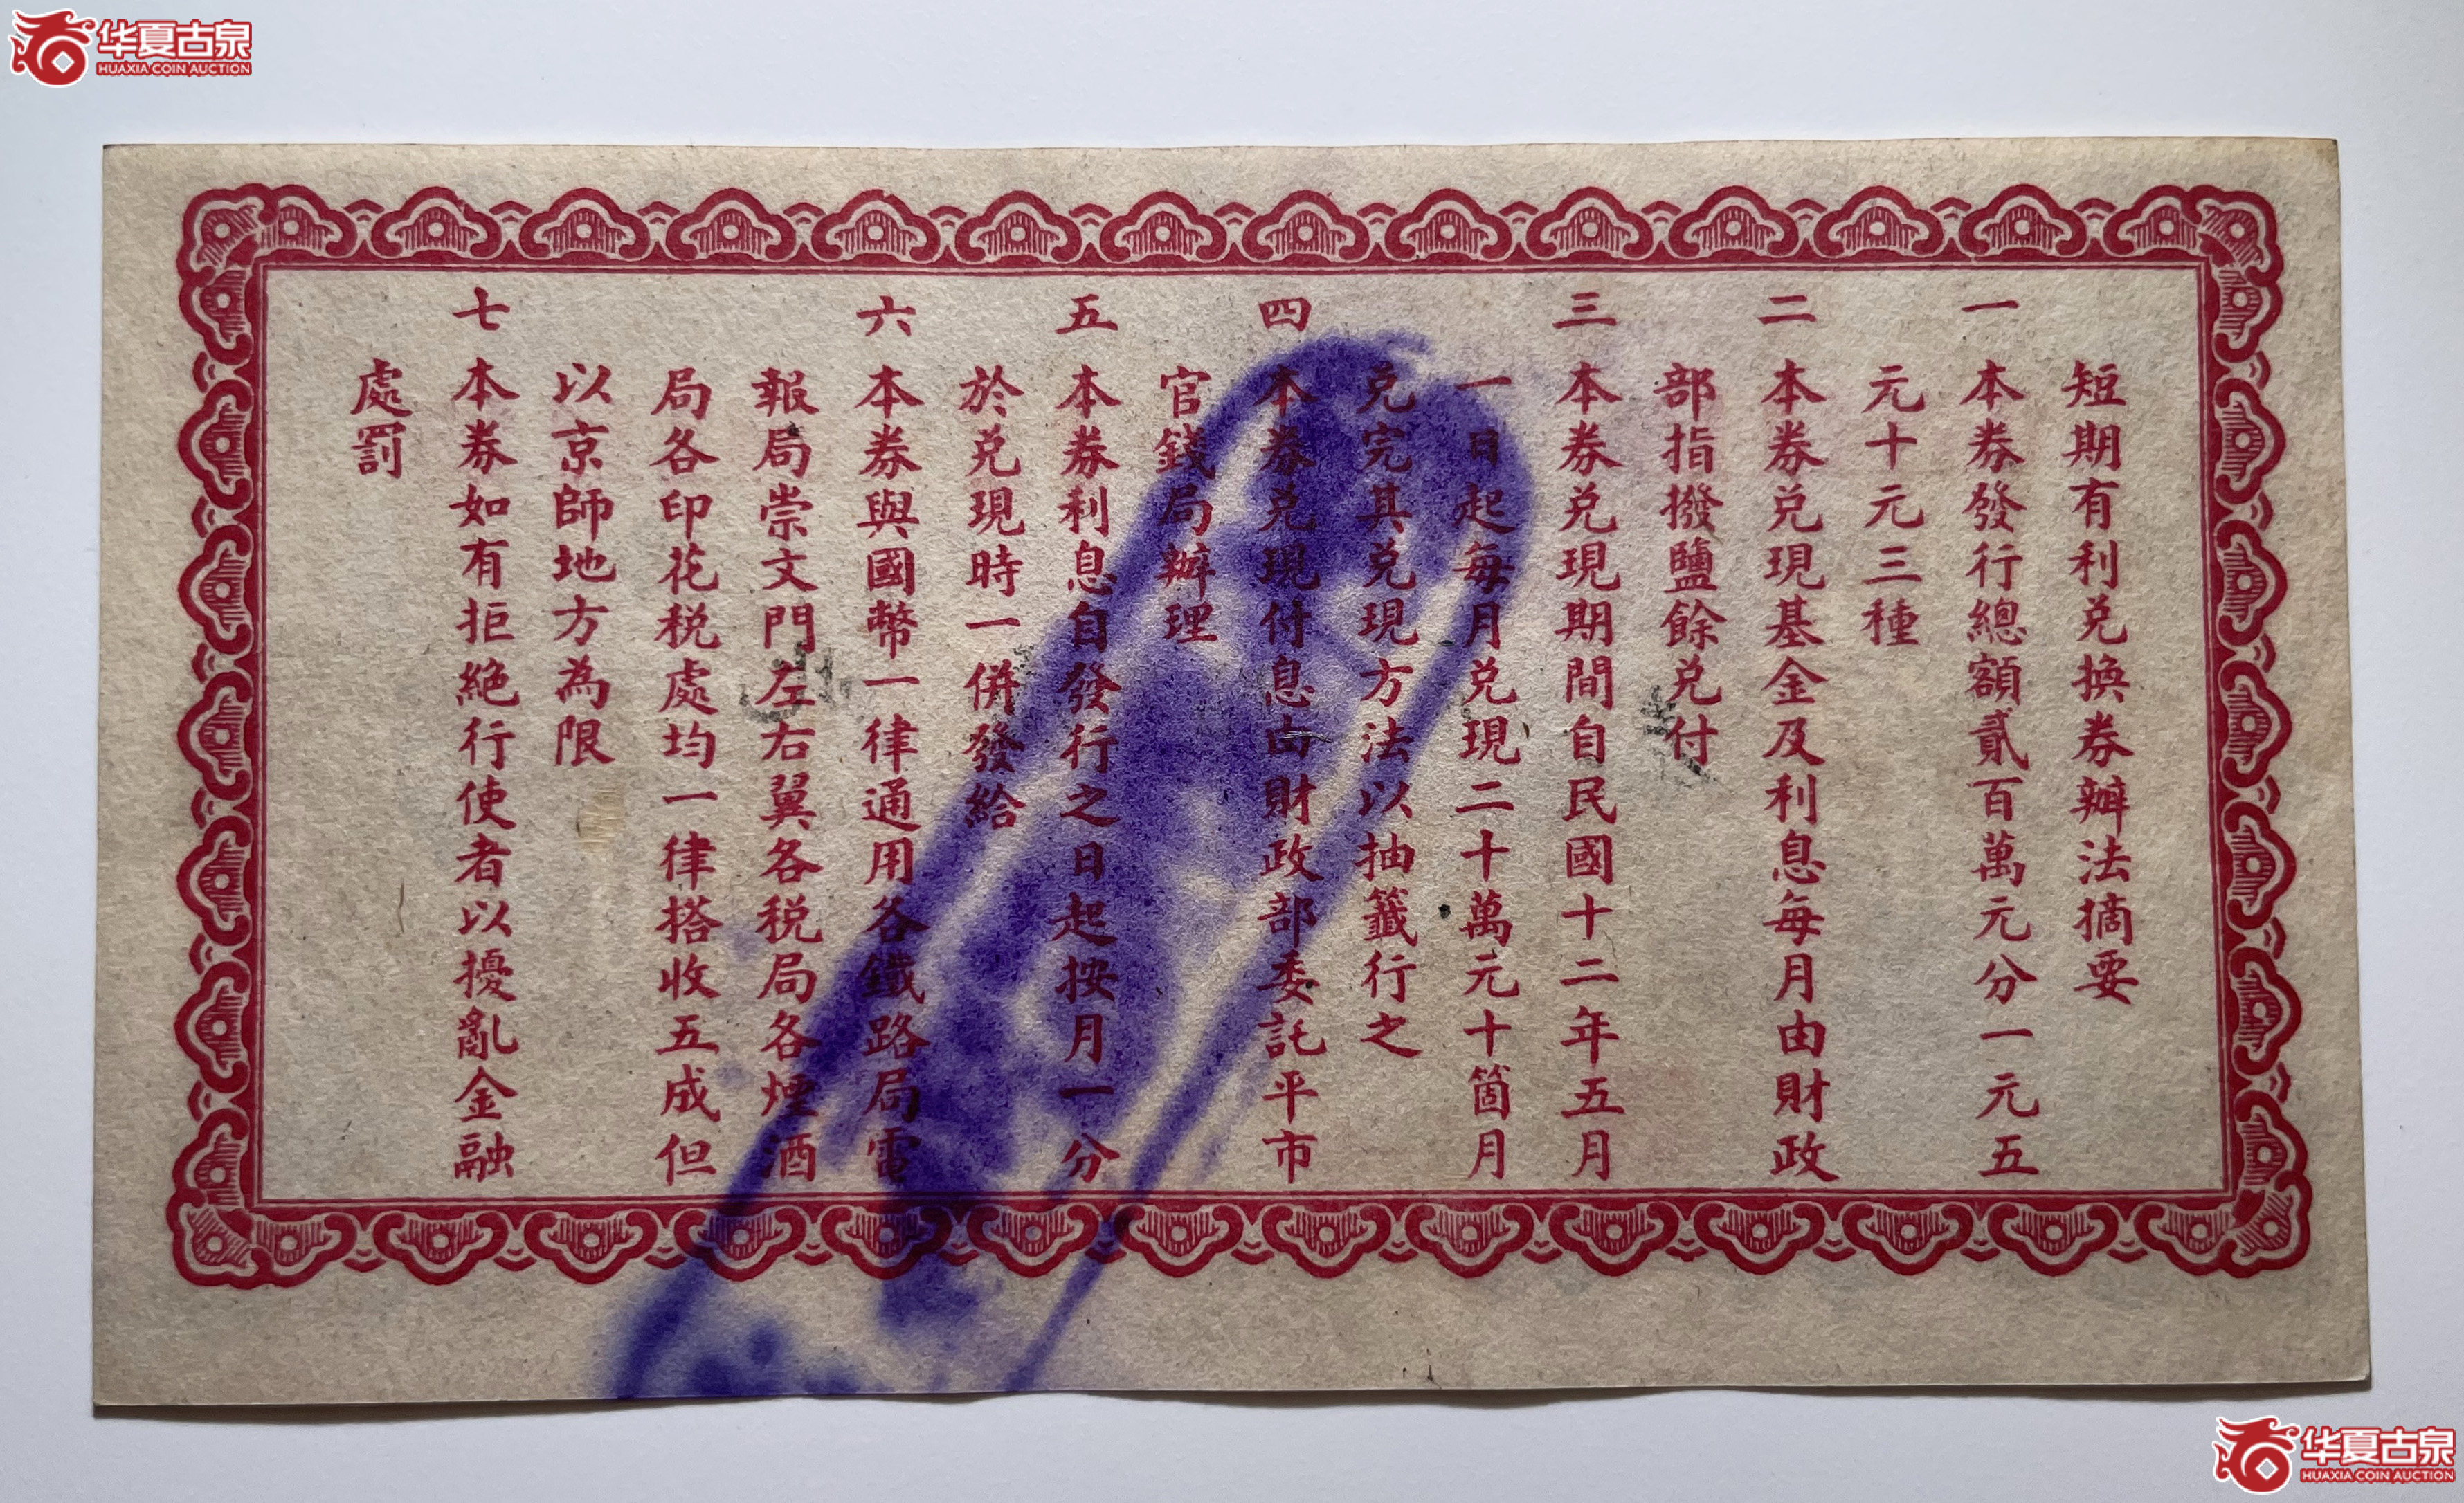 华夏古泉
HUAXIA COIN AUCTION
短期有利兑換券辦法摘要
一 本券發行總額貳百萬元分一元五
元十元三種
二 本券兑現基金及利息每月由財政
部指撥鹽餘兑付
三 本券兑現期間自民國十二年五月
一日起每月兑現二十萬元十箇月
兑完其兑現方法以抽籤行之
四 本券兑現付息由財政部委託平市
官錢局辦理
五 本券利息自發行之日起按月一分
於兑現時一併發給
六 本券與國幣一律通用各鐵路局電
報局崇文門左右翼各税局各煙酒
局各印花税處均一律搭收五成但
以京師地方為限
七 本券如有拒絶行使者以擾亂金融
處罰
华夏古泉
HUAXIA COIN AUCTION